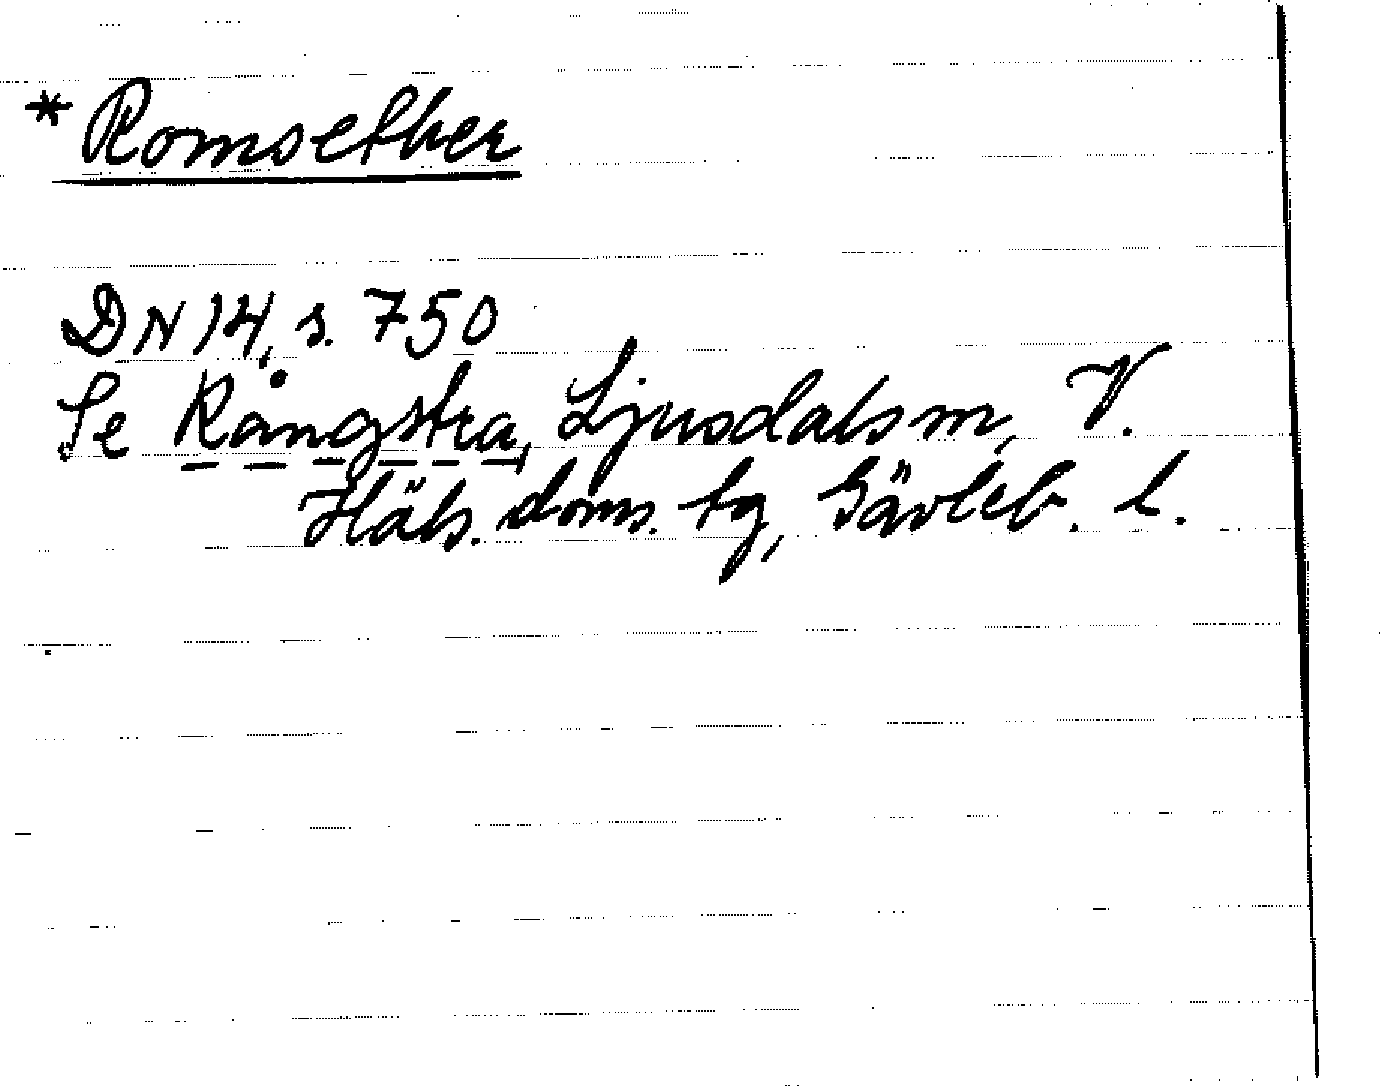 * Romsether
DN 14, s. 750
Se Rångstra, Ljusdals sn, V.
Häls. doms. tg, Gävleb. l.